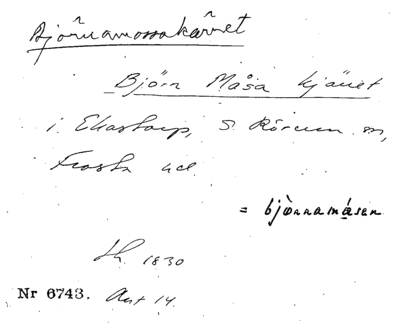 Björnamossakärret
Björn Måsa kjäret
i Ekastorp, S. Rörum sn,
Frosta hd.
= bjò̀rnamásen
Lh. 1830
Nr 6743. Ant 14.